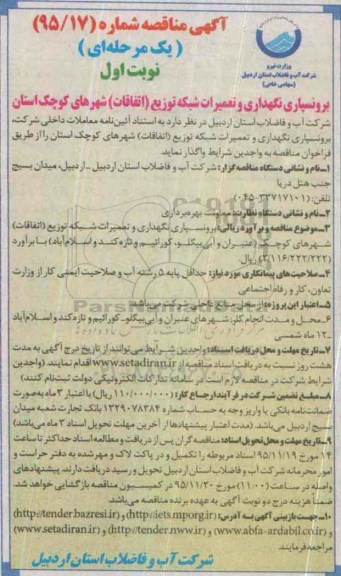 آگهی مناقصه شماره (۹۵/۱۷)
(یک مرحله‌ای)
نوبت اول
وزارت نیرو
شرکت آب و فاضلاب استان اردبیل
(سهامی خاص)
برونسپاری نگهداری و تعمیرات شبکه توزیع (اتفاقات) شهرهای کوچک استان
شرکت آب و فاضلاب استان اردبیل در نظر دارد به استناد آئین‌نامه معاملات داخلی شرکت،
برونسپاری نگهداری و تعمیرات شبکه توزیع (اتفاقات) شهرهای کوچک استان را از طریق
فراخوان مناقصه به واجدین شرایط واگذار نماید.
۱ـ نام و نشانی دستگاه مناقصه گزار: شرکت آب و فاضلاب استان اردبیل ـ اردبیل، میدان بسیج
جنب هتل دریا
تلفن:
۲ـ نام و نشانی دستگاه نظارت: معاونت بهره‌برداری
۳ـ موضوع مناقصه و برآورد ریالی: برونسپاری نگهداری و تعمیرات شبکه توزیع (اتفاقات)
شهرهای کوچک (عنبران و آبی‌بیگلو، کورائیم و تازه کند و اسلام‌آباد) با برآورد
ریال
۴ـ صلاحیت‌های پیمانکاری مورد نیاز: حداقل پایه ۵ رشته آب و صلاحیت ایمنی کار از وزارت
تعاون، کار و رفاه اجتماعی
۵ـ اعتبار این پروژه: از محل منابع داخلی شرکت می‌باشد
۶ـ محل و مدت انجام کار: شهرهای عنبران و آبی‌بیگلو ـ کورائیم و تازه کند و اسلام‌آباد
ـ ۱۲ ماه شمسی
۷ـ تاریخ مهلت و محل دریافت اسناد: واجدین شرایط می‌توانند از تاریخ درج آگهی به مدت
هشت روز نسبت به دریافت اسناد مناقصه از www.setadiran.ir اقدام نمایند. (واجدین
شرایط شرکت در مناقصه لازم است در سامانه تدارکات الکترونیکی دولت ثبت‌نام کنند)
۸ـ مبلغ تضمین شرکت در فرآیند ارجاع کار: (۱۱۰/۰۰۰/۰۰۰) ریال با اعتبار ۳ ماه به صورت
ضمانت‌نامه بانکی یا واریز وجه به حساب شماره ۱۳۲۹۰۷۸۳۸۴ بانک تجارت شعبه میدان
بسیج اردبیل می‌باشد. (مدت اعتبار پیشنهادها از آخرین مهلت تحویل اسناد ۳ ماه می‌باشد)
۹ـ تاریخ مهلت و محل تحویل اسناد: مناقصه گران پس از دریافت و مطالعه اسناد حداکثر تا ساعت
۱۴ مورخ ۹۵/۱۱/۱۹ اسناد مربوطه را تکمیل و در پاکت لاک و مهر شده به دفتر حراست و
امور محرمانه شرکت آب و فاضلاب استان اردبیل تحویل و رسید دریافت دارند. پیشنهادهای
واصله در ساعت (۱۱:۰۰) مورخ ۹۵/۱۱/۲۰ در کمیسیون مناقصه بازگشایی خواهد شد.
ضمناً هزینه درج دو نوبت آگهی به عهده برنده مناقصه می‌باشد.
۱۰ـ جهت بازبینی آگهی به آدرس: (http://iets.mporg.ir) و (http://tender.bazresi.ir)
و (www.abfa-ardabil.co.ir) و (http://tender.nww.ir) و (www.setadiran.ir)
مراجعه فرمایند.
شرکت آب و فاضلاب استان اردبیل